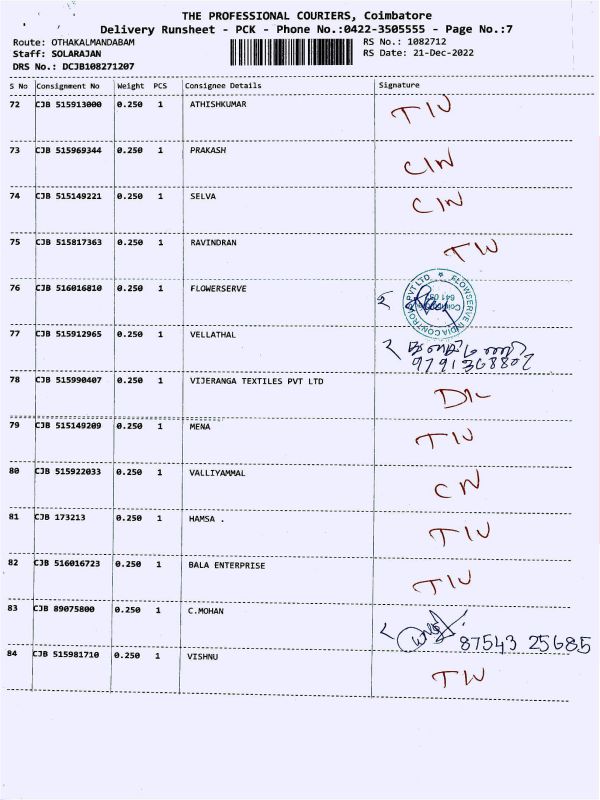 THE PROFESSIONAL COURIERS, Coimbatore
Delivery Runsheet - PCK - Phone No.:0422-3505555 - Page No.:7
Route: OTHAKALMANDABAM RS No.: 1082712
Staff: SOLARAJAN RS Date: 21-Dec-2022
DRS No.: DCJB108271207
S No Consignment No Weight PCS Consignee Details Signature
72 CJB 515913000 0.250 1 ATHISHKUMAR TIN
73 CJB 515969344 0.250 1 PRAKASH CIN
74 CJB 515149221 0.250 1 SELVA CIN
75 CJB 515817363 0.250 1 RAVINDRAN TIN
76 CJB 516016810 0.250 1 FLOWERSERVE
FLOWSERVE INDIA CONTROLS PVT LTD
77 CJB 515912965 0.250 1 VELLATHAL
9791368802
78 CJB 515990407 0.250 1 VIJERANGA TEXTILES PVT LTD
79 CJB 515149209 0.250 1 MENA TIN
80 CJB 515922033 0.250 1 VALLIYAMMAL CN
81 CJB 173213 0.250 1 HAMSA . TIN
82 CJB 516016723 0.250 1 BALA ENTERPRISE TIN
83 CJB 89075800 0.250 1 C.MOHAN
87543 25685
84 CJB 515981710 0.250 1 VISHNU TIN